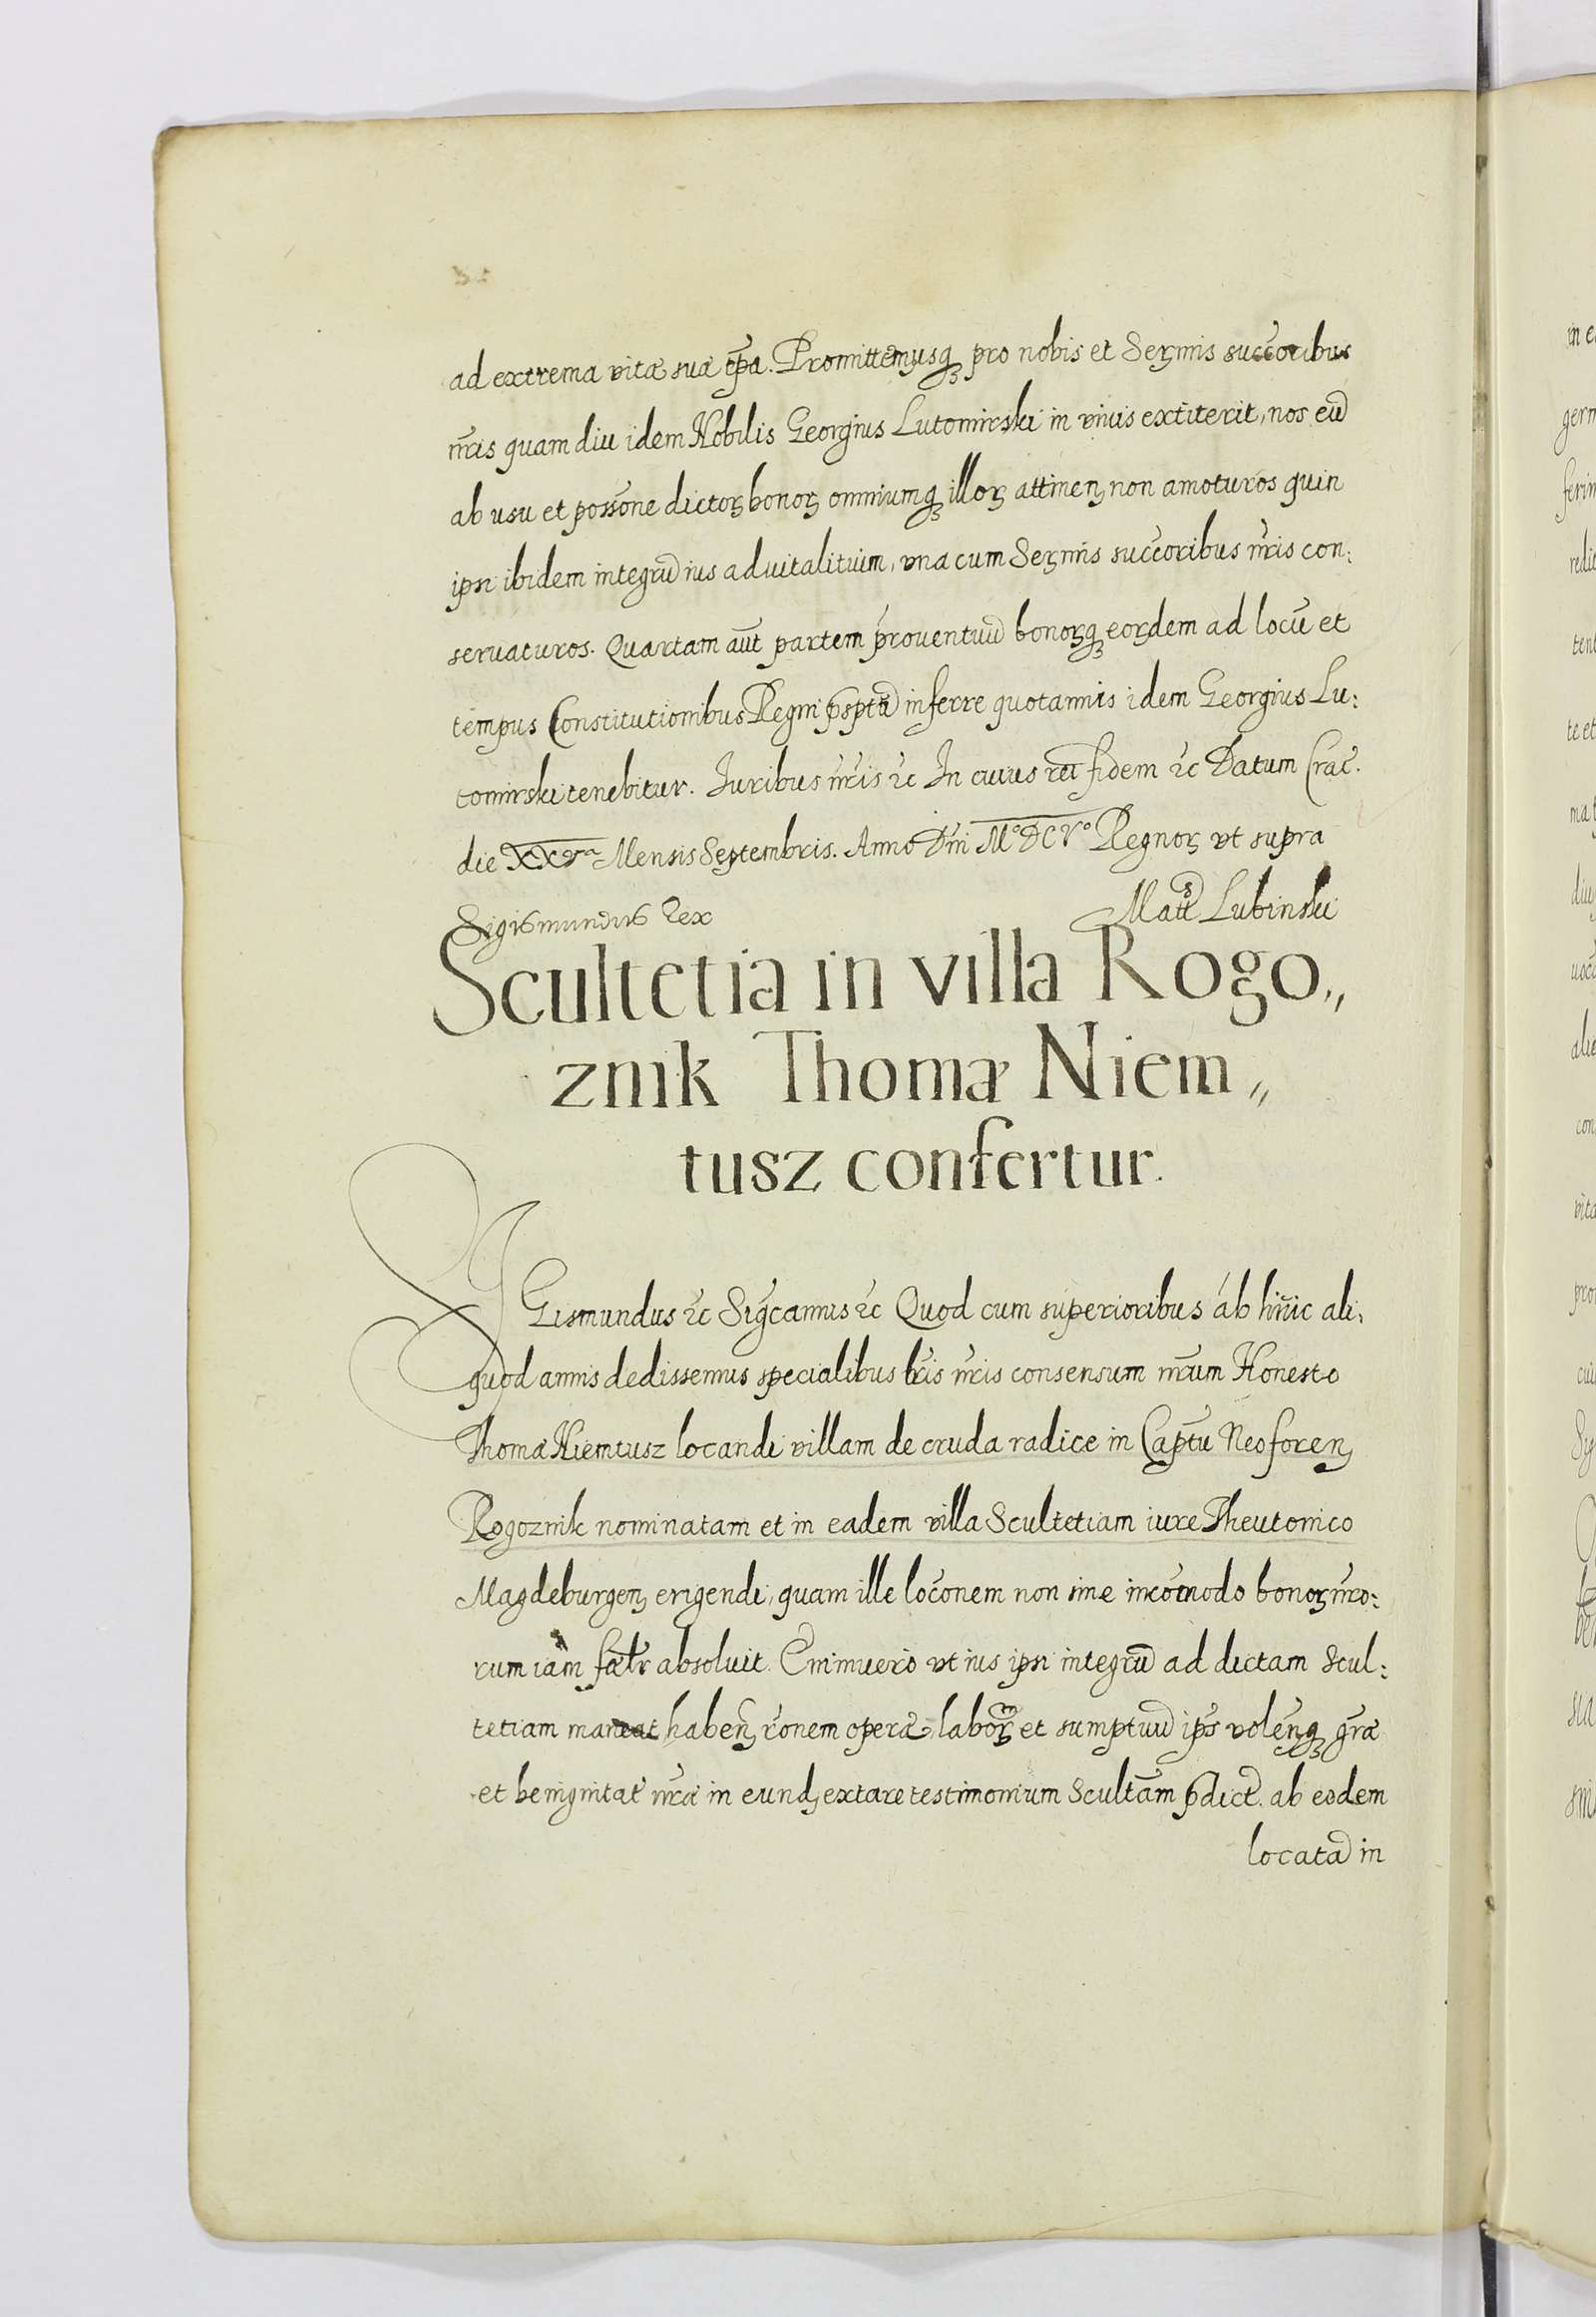 ad extrema vitæ suæ tp̃a. Promittemusq₃ pro nobis et Serꝫmis succ̃oribus
nr̃is quam diu idem Nobilis Georgius Lutomirski in viuis extiterit, nos eũ
ab usu et poss̃one dictorꝫ bonorꝫ omniumq₃ illorꝫ attinenꝫ non amoturos quin
ipsi ibidem integrũ ius aduitalitium, vna cum Serꝫmis succ̃oribus nr̃is con:
seruaturos. Quartam aũt partem prouentuũ bonorꝫq₃ eorꝫdem ad locũ et
tempus Constitutionibus Regni p̃sptũ inferre quotannis idem Georgius Lu:
tomirski tenebitur. Iuribus nr̃is ꝛc In cuius rei fidem ꝛc Datum Crac̃.
die XXVᵃ Mensis Septembris. Anno Dñi MºDCVº Regnorꝫ vt supra
Sigismundus Rex
Matt̃s Lubinski
Scultetia in villa Rogo„
znik Thomæ Niem„
tusz confertur.
SIGismundus ꝛc Sig̃camus ꝛc Quod cum superioribus ab hinc ali:
quod annis dedissemus specialibus lr̃is nr̃is consensum nr̃um Honesto
Thomæ Niemtusz locandi villam de cruda radice in Capt̃u Neoforenꝫ
Rogoznik nominatam et in eadem villa Scultetiam iure Theutonico
Magdeburgenꝫ erigendi, quam ille loc̃onem non sine incõmodo bonorꝫ nr̃o:
rum iam fælr̃ absoluit. Enimuero vt ius ipsi integrũ ad dictam Scul:
tetiam maneat habenꝫ r̃onem operæ, laborꝫ et sumptuũ ip̃s volenꝫq₃ gr̃æ
et benignitat̃ nr̃æ in eundꝫ extare testimonium Scultt̃am p̃dict̃. ab eodem
locatã in